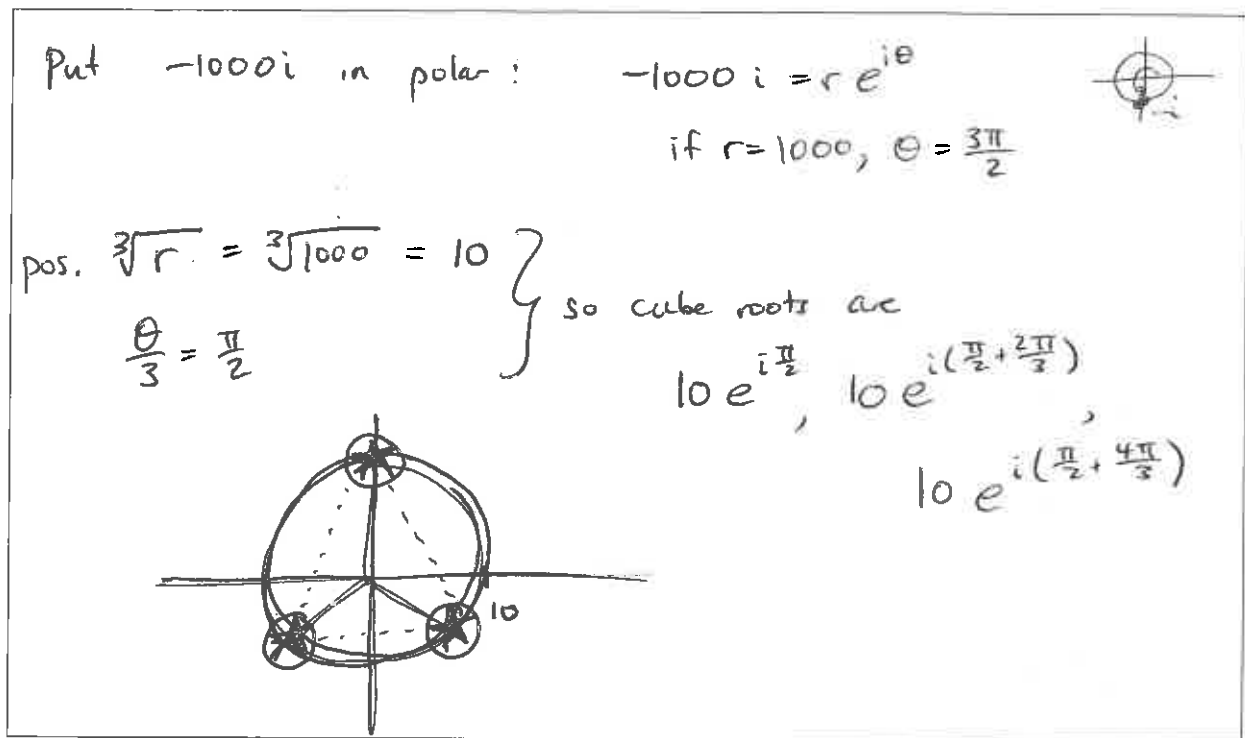 Put -1000i in polar: -1000 i = r e^{iθ}
-i
if r=1000, θ = 3π/2
pos. ∛r = ∛1000 = 10
θ/3 = π/2
so cube roots are
10 e^{i π/2}, 10 e^{i(π/2 + 2π/3)},
10 e^{i(π/2 + 4π/3)}
10